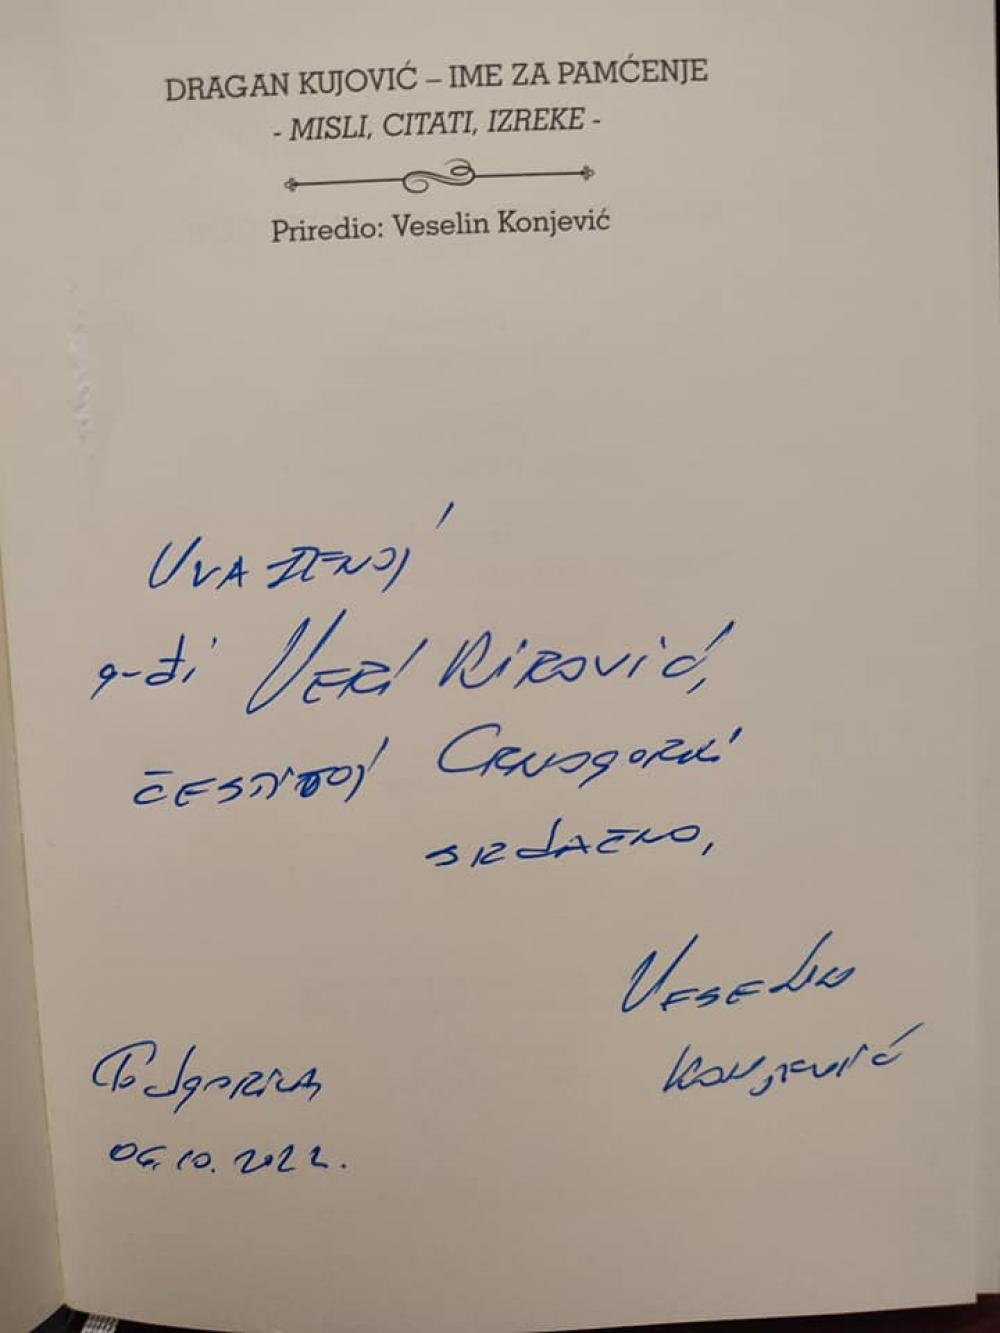 DRAGAN KUJOVIĆ – IME ZA PAMĆENJE
- MISLI, CITATI, IZREKE -
Priredio: Veselin Konjević
UVAŽENOJ
g-đi VERI KIROVIĆ,
ČESTITOJ CRNOGORKI
SRDAČNO,
VESELIN
KONJEVIĆ
PODGORICA
06.10.2022.